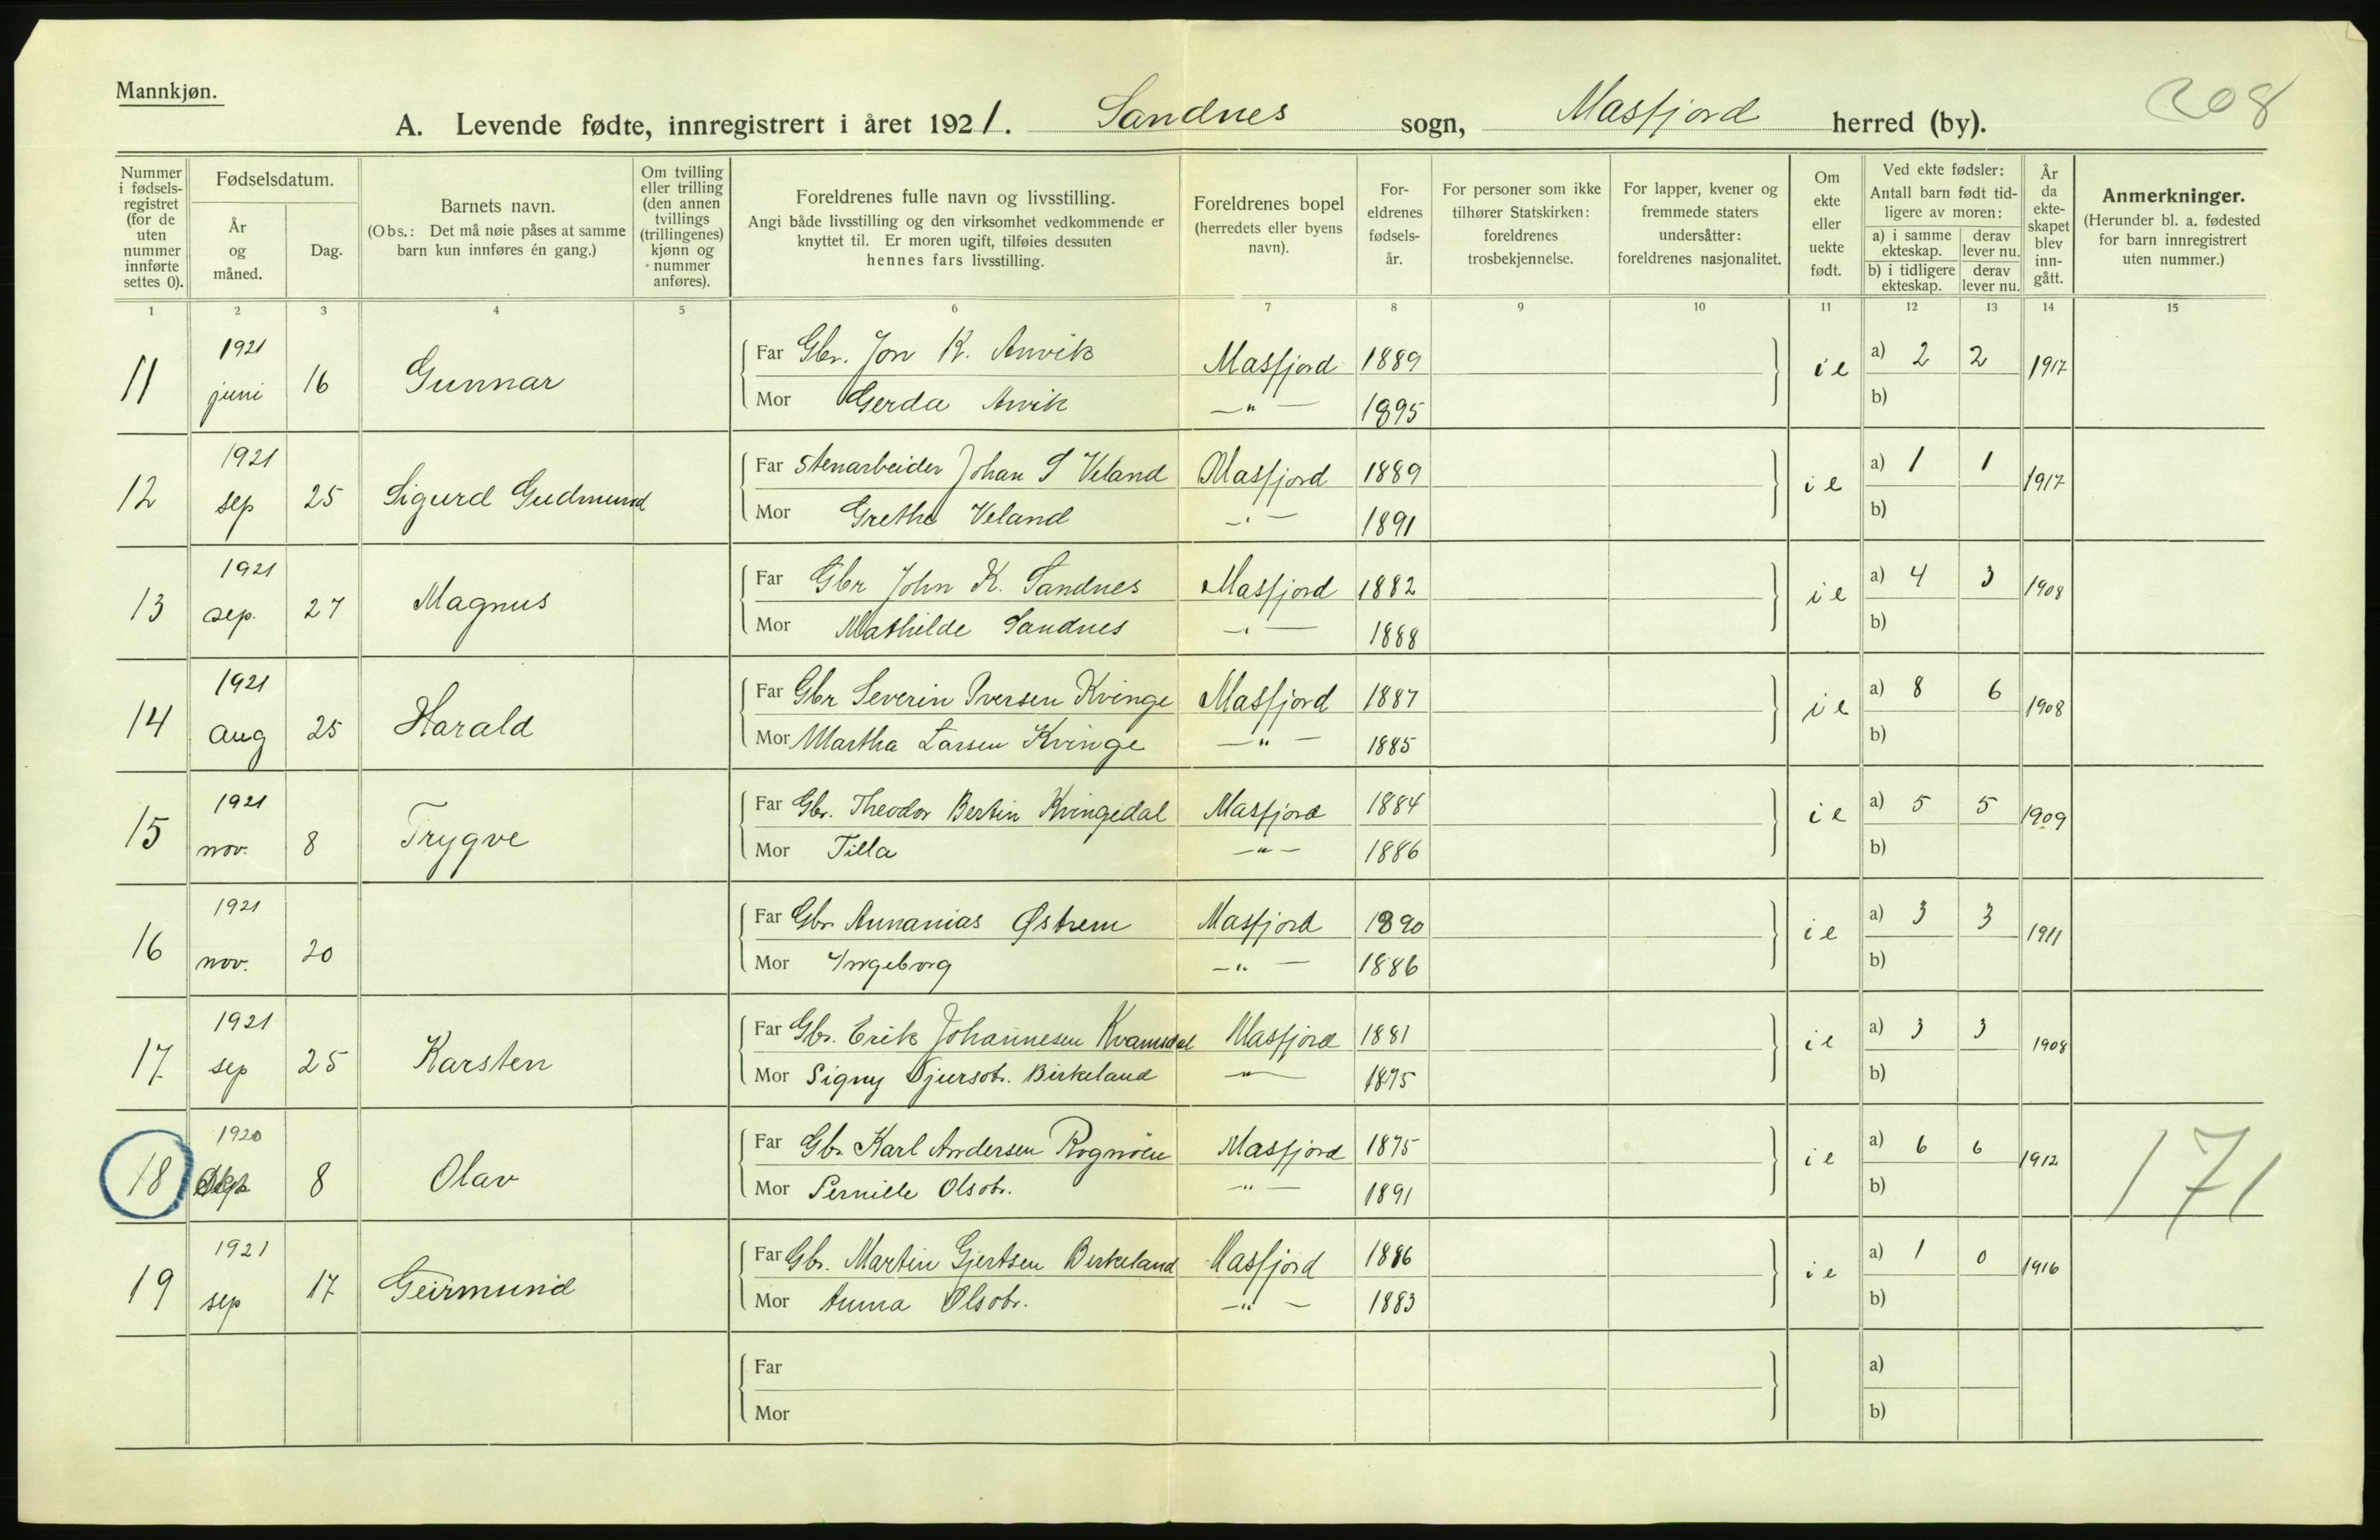 Mannkjøn.
208
A. Levende fødte, innregistrert i året 1921. Sandnes sogn, Masfjord herred (by).
Nummer i fødsels-registret (for de uten nummer innførte settes 0).
Fødselsdatum.
År og måned.
Dag.
Barnets navn.
(Obs.: Det må nøie påses at samme barn kun innføres én gang.)
Om tvilling eller trilling (den annen tvillings (trillingenes) kjønn og nummer anføres).
Foreldrenes fulle navn og livsstilling.
Angi både livsstilling og den virksomhet vedkommende er knyttet til. Er moren ugift, tilføies dessuten hennes fars livsstilling.
Foreldrenes bopel (herredets eller byens navn).
For-eldrenes fødsels-år.
For personer som ikke tilhører Statskirken: foreldrenes trosbekjennelse.
For lapper, kvener og fremmede staters undersåtter: foreldrenes nasjonalitet.
Om ekte eller uekte født.
Ved ekte fødsler:
Antall barn født tid-ligere av moren:
a) i samme ekteskap. derav lever nu.
b) i tidligere ekteskap. derav lever nu.
År da ekte-skapet blev inn-gått.
Anmerkninger.
(Herunder bl. a. fødested for barn innregistrert uten nummer.)
1 2 3 4 5 6 7 8 9 10 11 12 13 14 15
11 1921 juni 16 Gunnar Far Gbr. Jon K. Anvik Masfjord 1889 i e a) 2 2 1917
Mor Gerda Anvik —"— 1895 b)
12 1921 sep 25 Sigurd Gudmund Far Stenarbeider Johan S Veland Masfjord 1889 i e a) 1 1 1917
Mor Grethe Veland —"— 1891 b)
13 1921 sep. 27 Magnus Far Gbr John K. Sandnes Masfjord 1882 i e a) 4 3 1908
Mor Mathilde Sandnes —"— 1888 b)
14 1921 aug 25 Harald Far Gbr Severin Iversen Kvinge Masfjord 1887 i e a) 8 6 1908
Mor Martha Larsen Kvinge —"— 1885 b)
15 1921 nov. 8 Trygve Far Gbr. Theodor Bertin Kvingedal Masfjord 1884 i e a) 5 5 1909
Mor Tilla —"— 1886 b)
16 1921 nov. 20 Far Gbr Annanias Østrem Masfjord 1890 i e a) 3 3 1911
Mor Ingeborg —"— 1886 b)
17 1921 sep 25 Karsten Far Gbr. Erik Johannesen Kvamsdal Masfjord 1881 i e a) 3 3 1908
Mor Signy Birkeland —"— 1875 b)
18 1920 8 Olav Far Gbr Karl Andersen Rognöen Masfjord 1875 i e a) 6 6 1912 171
Mor Pernille Olsdtr. —"— 1891 b)
19 1921 sep 17 Geirmund Far Gbr. Martin Gjertsen Birkeland Masfjord 1886 i e a) 1 0 1916
Mor Anna Olsdtr. —"— 1883 b)
Far a)
Mor b)